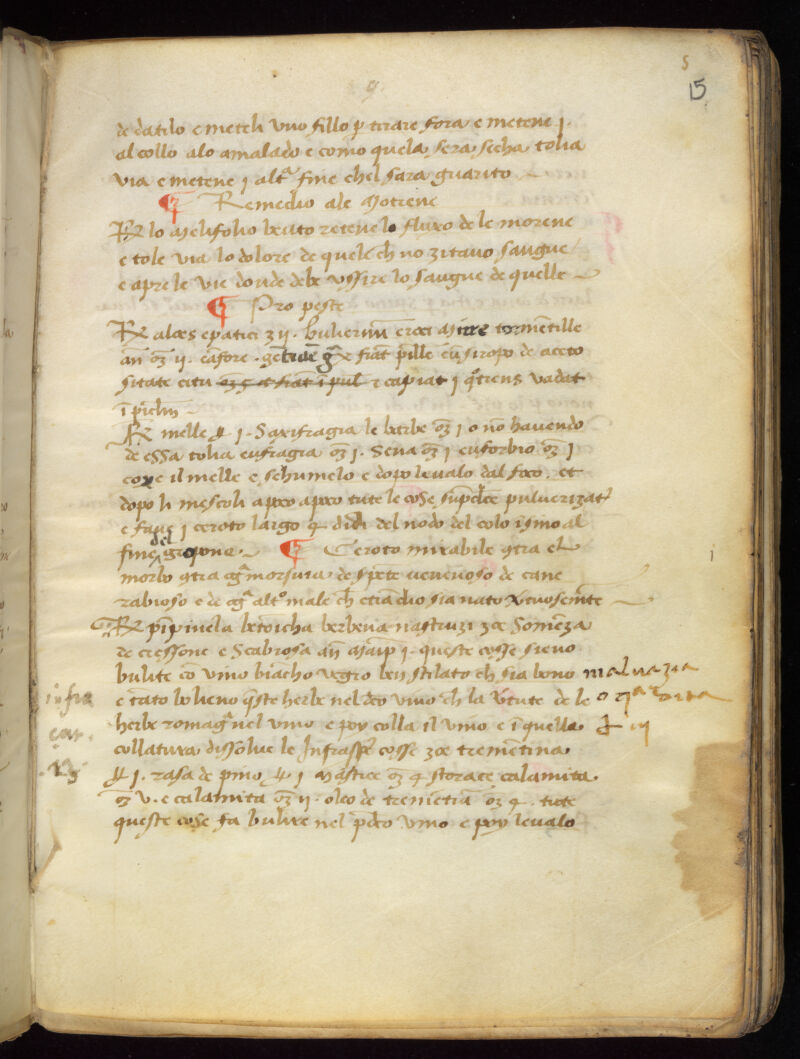 5
15
de datilo e meteli uno fillo p tirare fora e metene j.
al collo alo amalado e como quela sera secha tolia
via e metene j alt͛ fine chel sara guarito
¶ Remedio ale Morene
℞ lo Melifolio beuto retene lo fluxo de le morene
e tole via lo dolore de quele ch̄ no zitano sangue
e apre le vie donde debe ussire lo sangue de quelle
¶ Pro peste
℞ aloes epatici ʒ ij. croci Mirre tormētille
an̄ o℥ ij. cāfore . fiāt pille cū siropo de aceto
sitate citri
℞ melle j. Saxifragia le barbe o℥ j o nō havendo
de essa tolia eufragia o℥ j. Sena o℥ j euforbio o℥ j
coxe il melle e schumelo e dopo levalo dal foco. et
dopo li mescoli apoco apoco tute le cose pulverizat͛
e fane j ceroto largo 4 didi del nodo del colo ismo al
fine del gropone. ¶ Ceroto mirabile 9tra el
morbo 9tra og͛ morsura de spēte venenoso de cane
rabioso e de og͛ alt͛o male ch̄ etiādio sia nato
℞ pīpinela betoicha berbena nastruzi zoe Somēza
de cressone e Scabrosa an̄ Maīp j. queste cosse sieno
bulite cō vino biācho vegro ben stilato ch̄ sia bono malvazia
e tāto boliēno q̄ste herbe nel dc̄o vino ch̄ la v̄tute de le
herbe romag͛ nel vino e poy colla il vino e ī quella
infra
car.
13
collatura dissolve le Infrasp̄te cosse zoe tremētina
j. rasa de pino j Mastice o℥ 4 storace calamita
o℥ v. e calamita o℥ ij. oleo de tremētia o℥ 4. tute
queste cose fa bulire nel p̄dc̄o vino e poy levalo